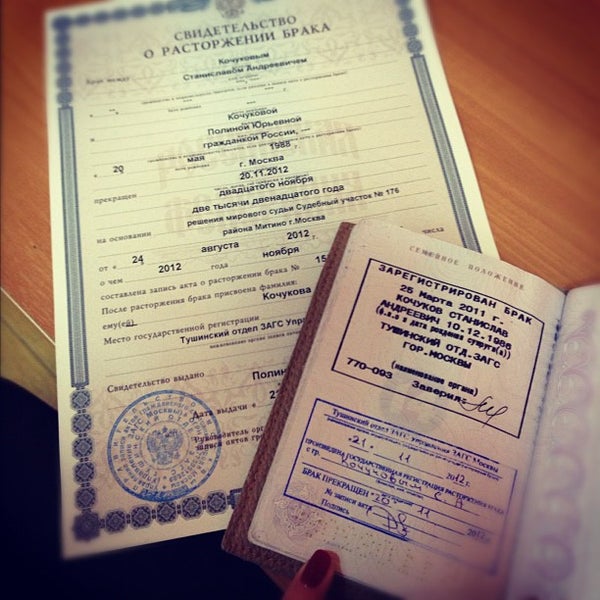 СВИДЕТЕЛЬСТВО
О РАСТОРЖЕНИИ БРАКА
Кочуковым
Брак между
Станиславом Андреевичем
Кочуковой
Полиной Юрьевной
гражданкой России,
« 20 мая 1988 г.
г. Москва
20.11.2012
прекращен двадцатого ноября
две тысячи двенадцатого года
на основании решения мирового судьи Судебный участок № 176
района Митино г.Москва
от « 24 августа 2012 г.
о чем 2012 года ноября числа
составлена запись акта о расторжении брака № 15
После расторжения брака присвоена фамилия:
ему(ей) Кочукова
Место государственной регистрации
Тушинский отдел ЗАГС Упра
Свидетельство выдано Полин
Дата выдачи « 2
Руководитель орга
записи актов гр
СЕМЕЙНОЕ ПОЛОЖЕНИЕ
ЗАРЕГИСТРИРОВАН БРАК
25 марта 2011 г.
КОЧУКОВ СТАНИСЛАВ
АНДРЕЕВИЧ 10.12.1986
(ф.и.о и дата рождения супруга(и))
ТУШИНСКИЙ ОТД.ЗАГС
ГОР.МОСКВЫ
(наименование органа)
770-093 Заверил:
Тушинский отдел ЗАГС Управления ЗАГС Москвы
ПРОИЗВЕДЕНА ГОСУДАРСТВЕННАЯ РЕГИСТРАЦИЯ РАСТОРЖЕНИЯ БРАКА
«21» 11 2012 г.
с гр. Кочуковым С. А
БРАК ПРЕКРАЩЕН "20" 11 2012 г.
№ записи акта
Подпись